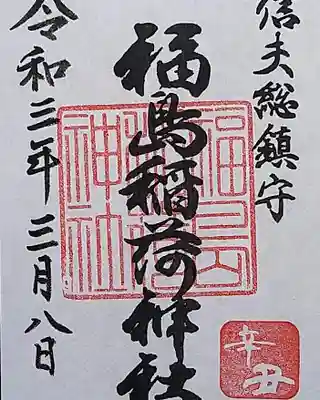 信夫総鎮守
福島稲荷神社
令和三年三月八日
辛丑